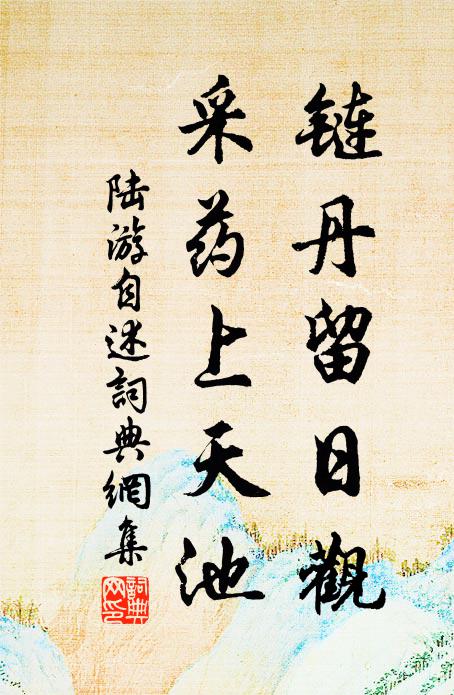 鏈丹留日觀
采药上天池
陆游自述詞典網集
詞典網印